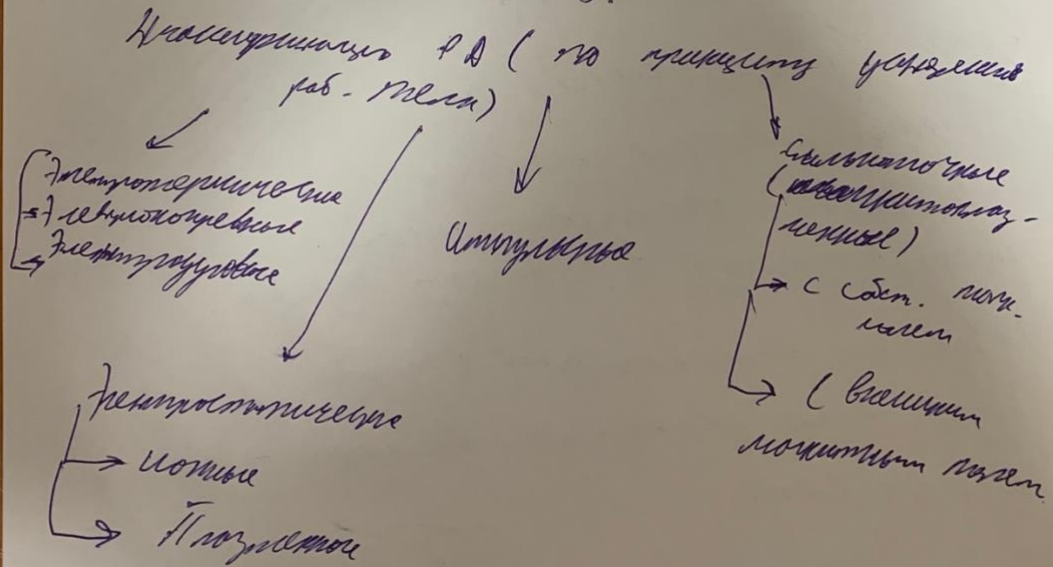 Классификация РД ( по принципу ускорения
раб. тела)
Электротермические
Электронагревные
Электродуговые
Импульсные
Сильноточные
(магнитоплаз-
менные)
с собст. магн.
полем
с внешним
магнитным полем
Электростатические
ионные
Плазменные